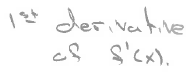 1st derivative
of f'(x).